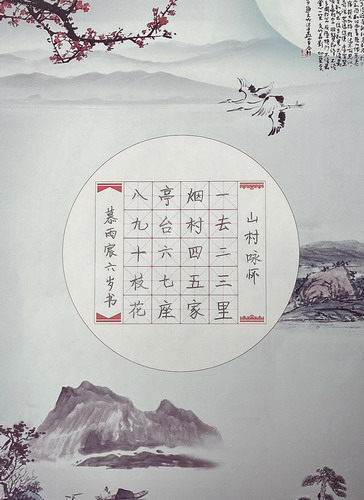 山村咏怀
一去二三里
烟村四五家
亭台六七座
八九十枝花
慕雨宸六岁书